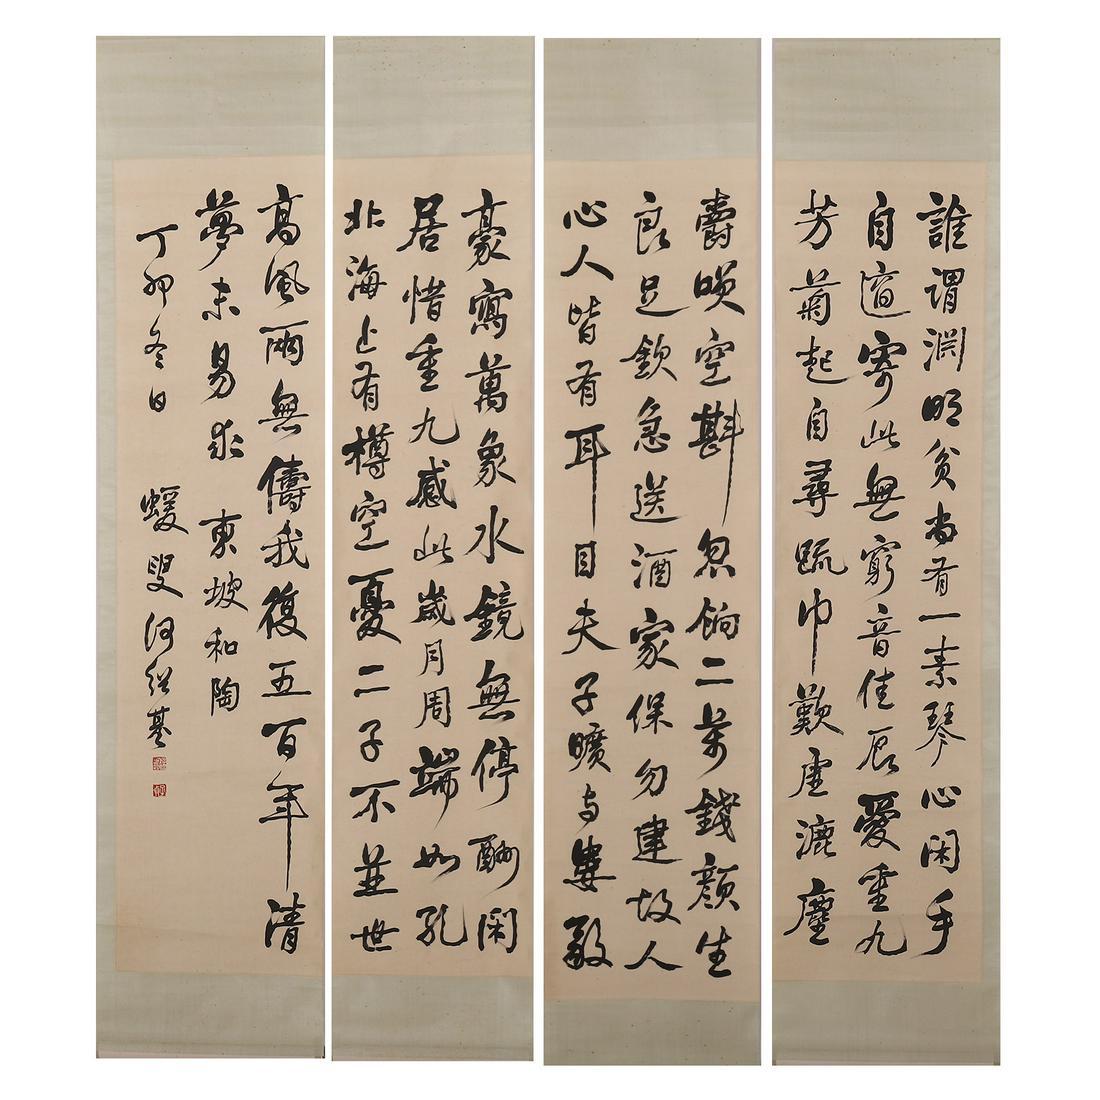 誰謂淵明貧尚有一素琴心閑手
自適寄此無窮音佳辰愛重九
芳菊起自尋疏巾歎虛漉塵
爵咲空斟忽餉二萬錢顏生
良足欽急送酒家保勿違故人
心人皆有耳目夫子曠与婁
豪寫萬象水鏡無停酬閑
居惜重九感此歲月周端如孔
北海止有樽空憂二子不並世
高風兩無儔我後五百年清
夢未易求 東坡和陶
丁卯冬日 蝯叟何紹基